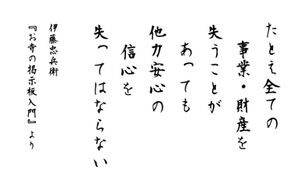 たとえ全ての
事業・財産を
失うことが
あっても
他力安心の
信心を
失ってはならない
伊藤忠兵衛
『お寺の掲示板入門』より